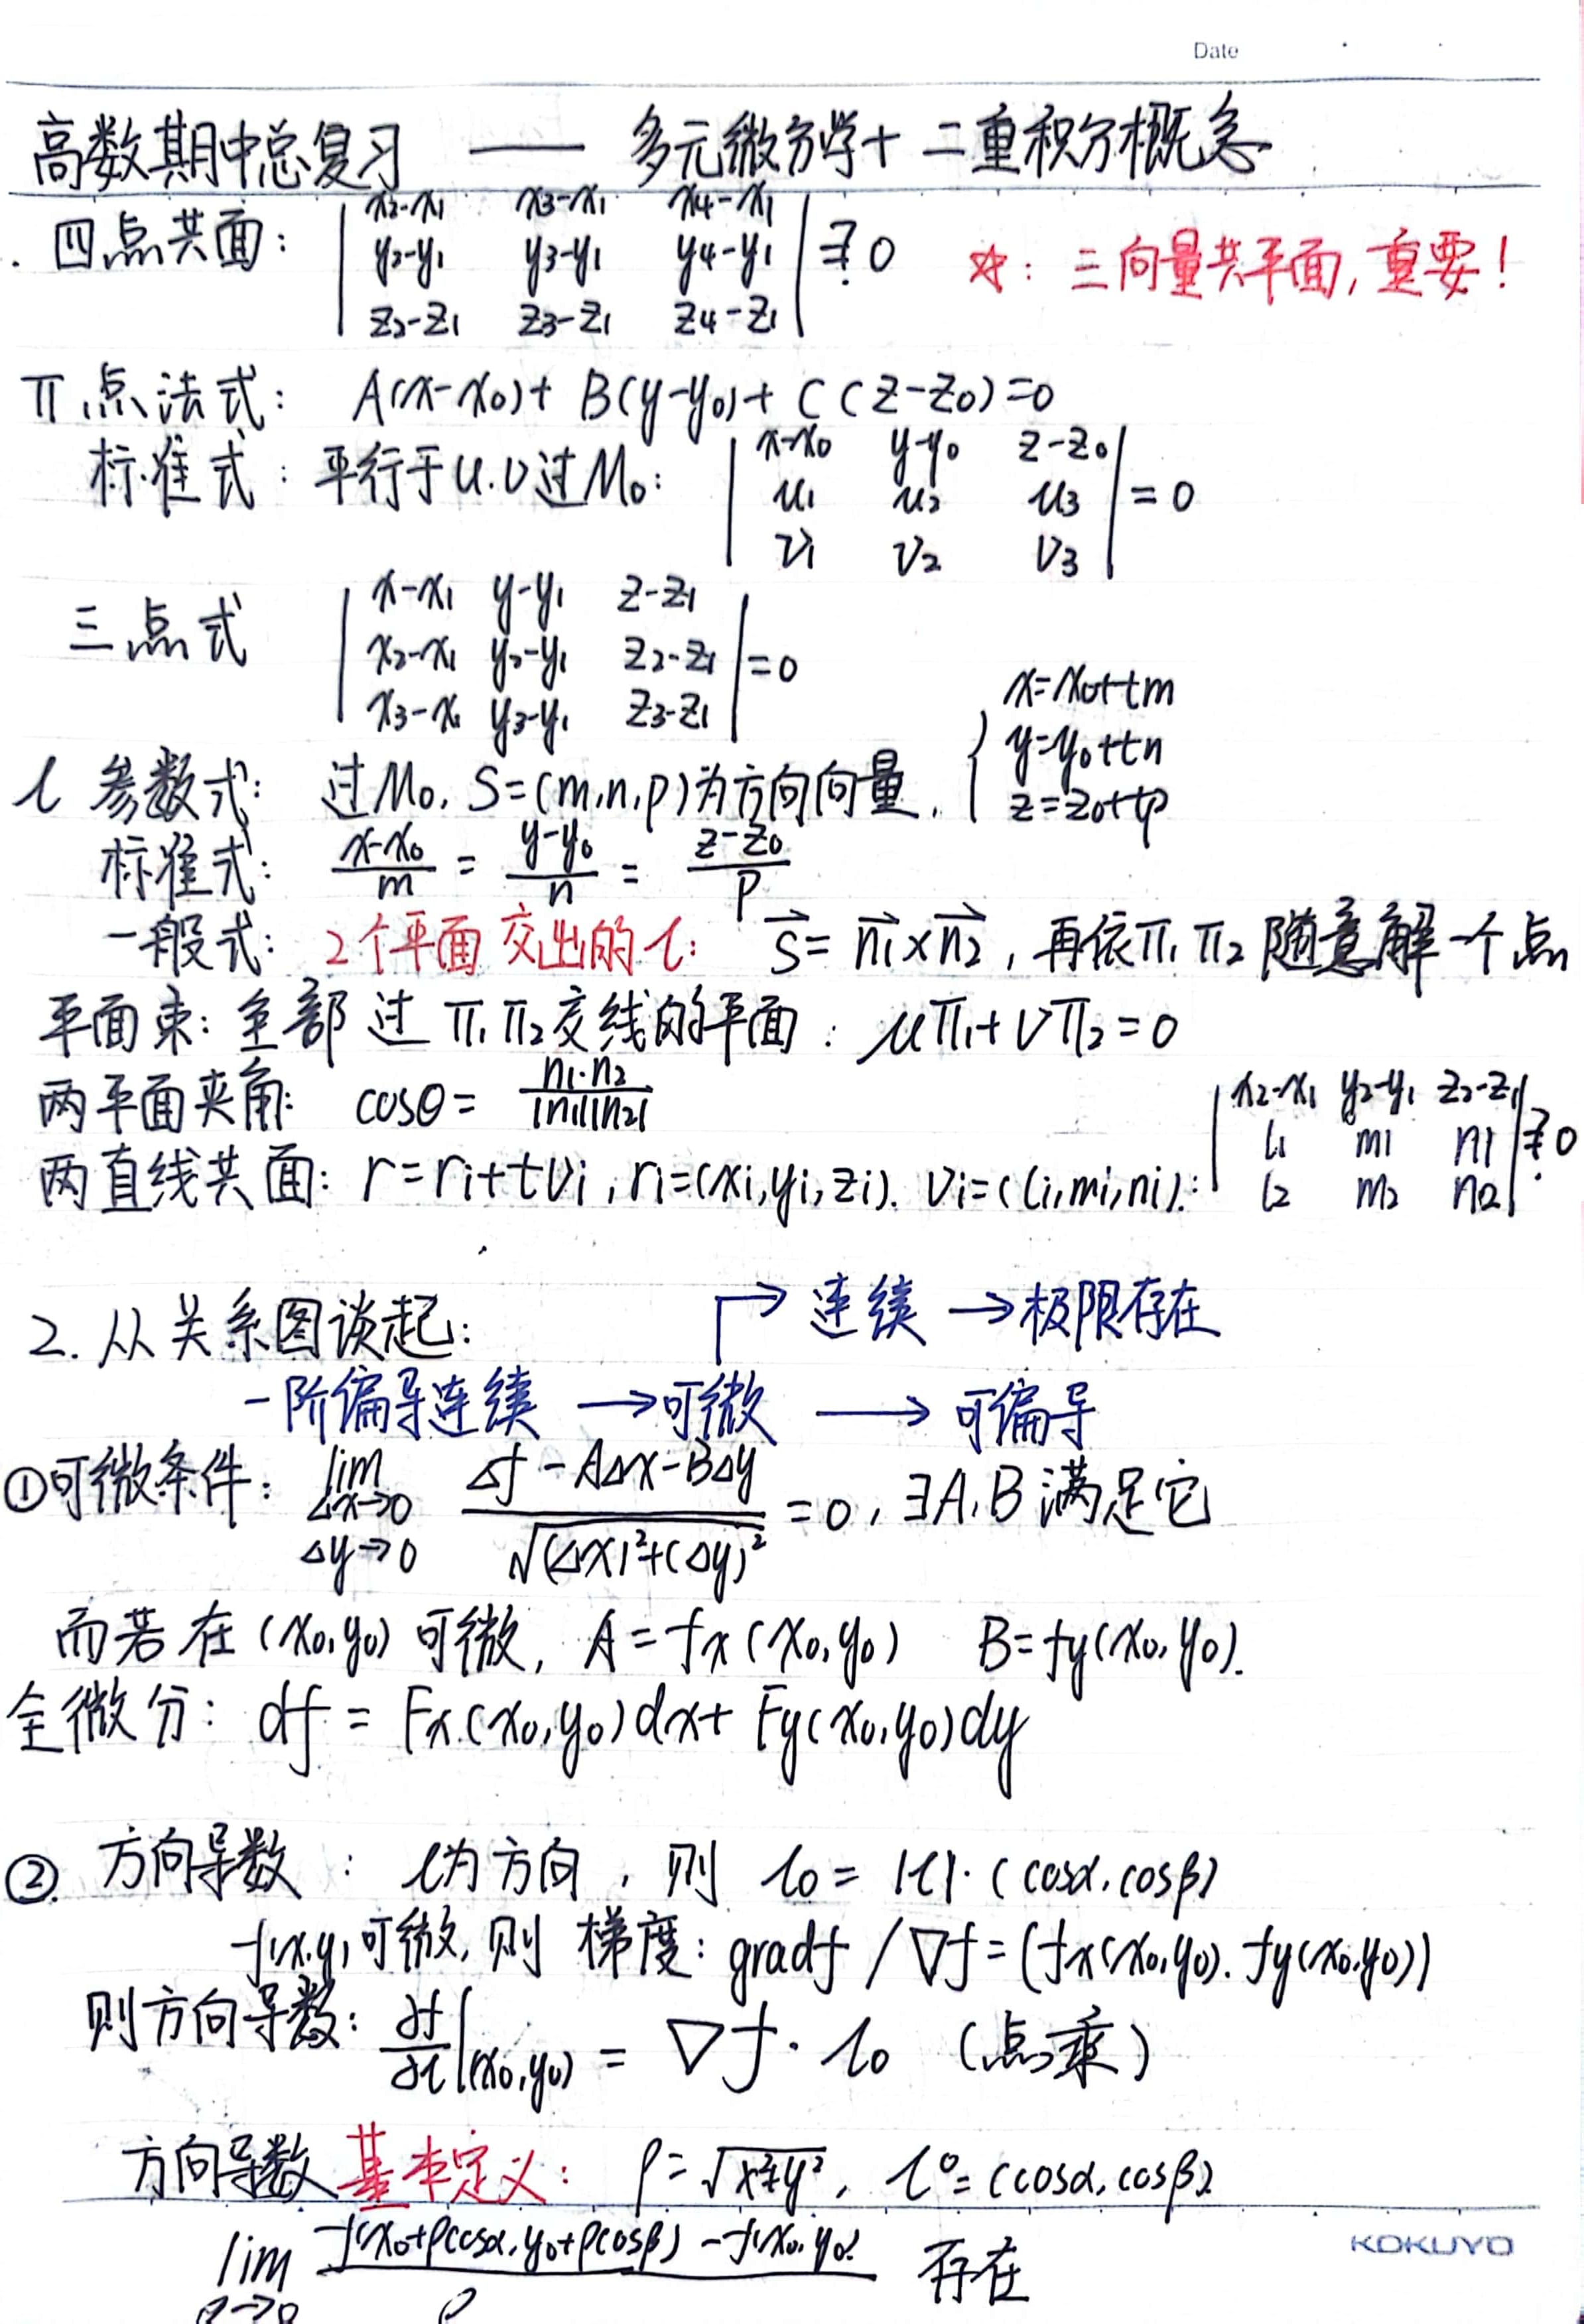 Date
高数期中总复习 —— 多元微分学+二重积分概念
. 四点共面: | x2-x1 x3-x1 x4-x1 |
| y2-y1 y3-y1 y4-y1 | ≟ 0 ☆: 三向量共平面, 重要!
| z2-z1 z3-z1 z4-z1 |
π 点法式: A(x-x0)+ B(y-y0)+ C(z-z0)=0
标准式: 平行于u.v过M0: | x-x0 y-y0 z-z0 |
| u1 u2 u3 | = 0
| v1 v2 v3 |
三点式 | x-x1 y-y1 z-z1 |
| x2-x1 y2-y1 z2-z1 | =0
| x3-x1 y3-y1 z3-z1 |
l 参数式: 过M0, S=(m,n,p)为方向向量, { x=x0+tm
y=y0+tn
z=z0+tp
标准式: (x-x0)/m = (y-y0)/n = (z-z0)/p
一般式: 2个平面交出的l: s⃗= n1⃗×n2⃗, 再依π1 π2 随意解一个点
平面束: 全部过π1π2交线的平面: μπ1+νπ2=0
两平面夹角: cosθ= n1·n2/|n1||n2|
两直线共面: r=ri+tvi, ri=(xi,yi,zi). vi=(li,mi,ni).: | x2-x1 y2-y1 z2-z1 |
| l1 m1 n1 | ≟ 0
| l2 m2 n2 |
2. 从关系图谈起: ↱ 连续 → 极限存在
一阶偏导连续 → 可微 → 可偏导
①可微条件: lim Δx→0 Δy→0 (Δf-AΔx-BΔy)/√((Δx)²+(Δy)²) = 0, ∃A,B 满足它
而若在(x0,y0)可微, A=fx(x0,y0) B=fy(x0,y0).
全微分: df = Fx(x0,y0)dx+ Fy(x0,y0)dy
②. 方向导数: l为方向, 则 l0= |l|·(cosα,cosβ)
f(x,y)可微, 则 梯度: gradf /∇f=(fx(x0,y0). fy(x0,y0))
则方向导数: ∂f/∂l|(x0,y0) = ∇f· l0 (点乘)
方向导数基本定义: ρ=√x²+y², l°=(cosα,cosβ)
lim ρ→0 (f(x0+ρcosα,y0+ρcosβ)-f(x0,y0))/ρ 存在
KOKUYO